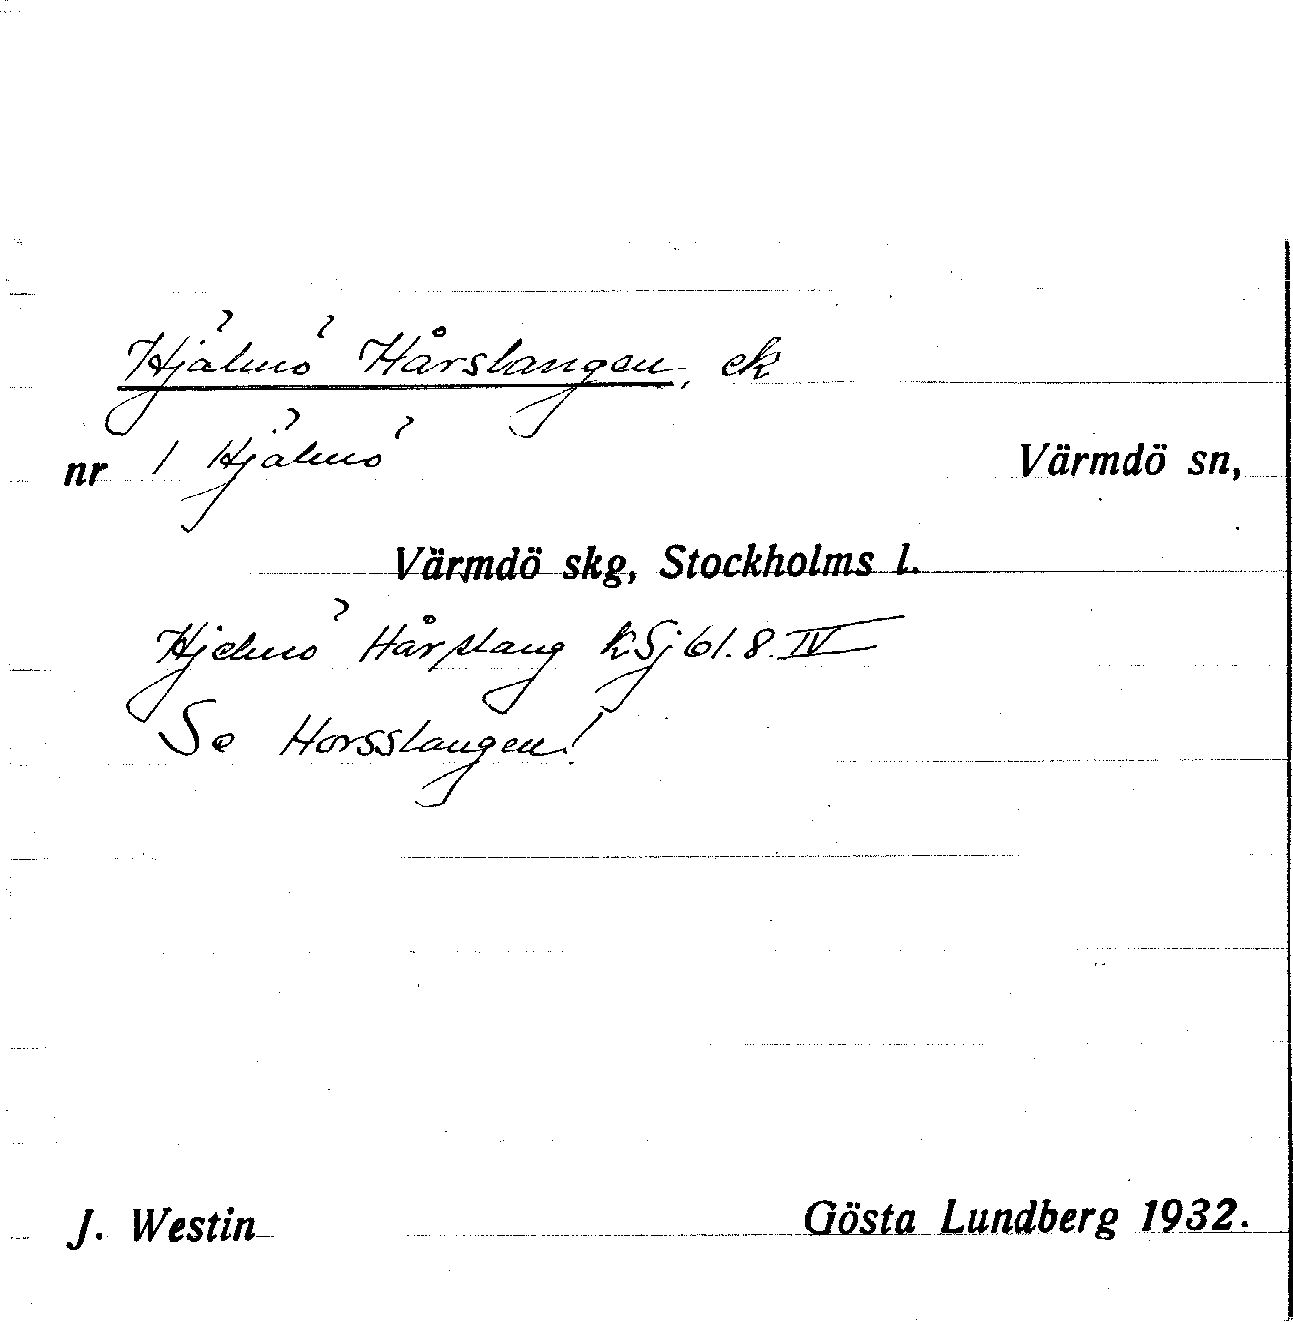 Hjälmö Hårslangen, ek
nr 1 Hjälmö Värmdö sn,
Värmdö skg, Stockholms l.
Hjelmö Hårslang KSj 61.8.IV
Se Horsslangen!
J. Westin Gösta Lundberg 1932.